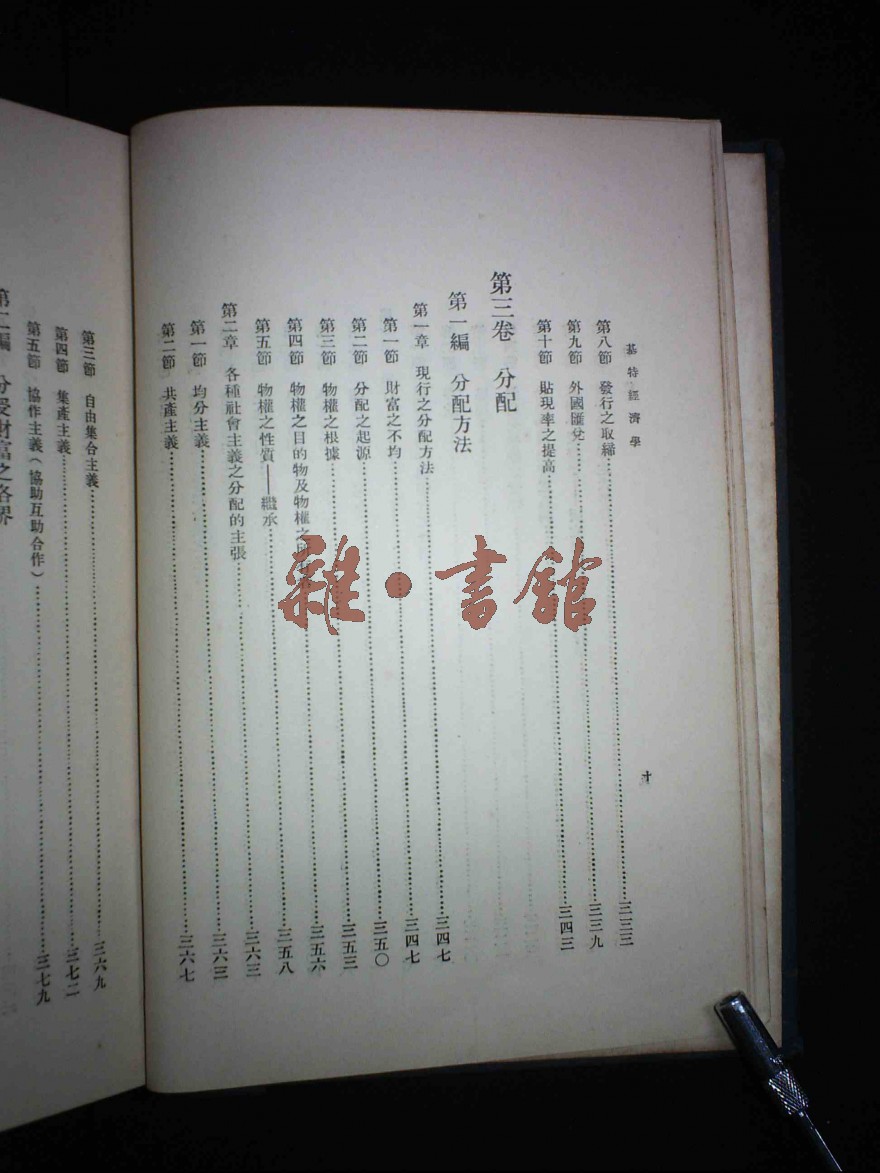 基特經濟學
十
第八節 發行之取締 三三三
第九節 外國匯兌 三三九
第十節 貼現率之提高 三四三
第三卷 分配
第一編 分配方法
第一章 現行之分配方法 三四七
第一節 財富之不均 三四七
第二節 分配之起源 三五〇
第三節 物權之根據 三五三
第四節 物權之目的物及物權之 三五六
第五節 物權之性質——繼承 三五八
第二章 各種社會主義之分配的主張 三六三
第一節 均分主義 三六三
第二節 共產主義 三六七
第三節 自由集合主義 三六九
第四節 集產主義 三七二
第五節 協作主義(協助互助合作) 三七九
第二編 分受財富之各界
雜·書館